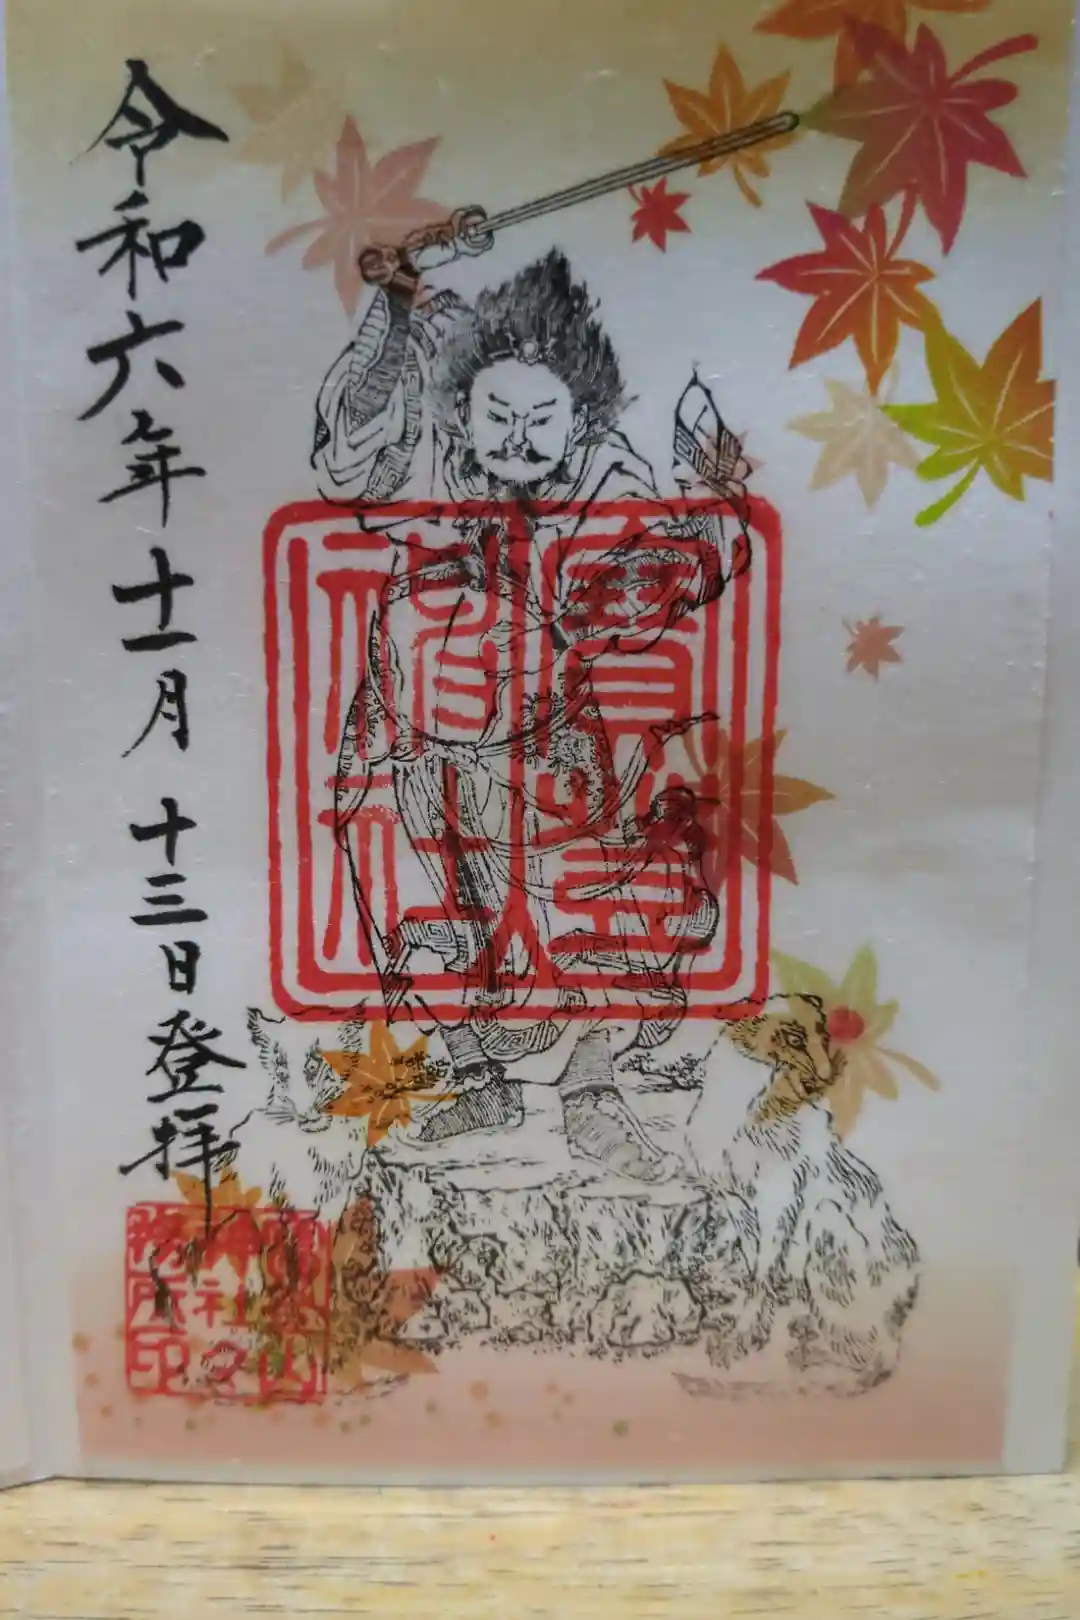 寶登山
神社
令和六年十一月十三日登拝
寶登山
神社々
務所印